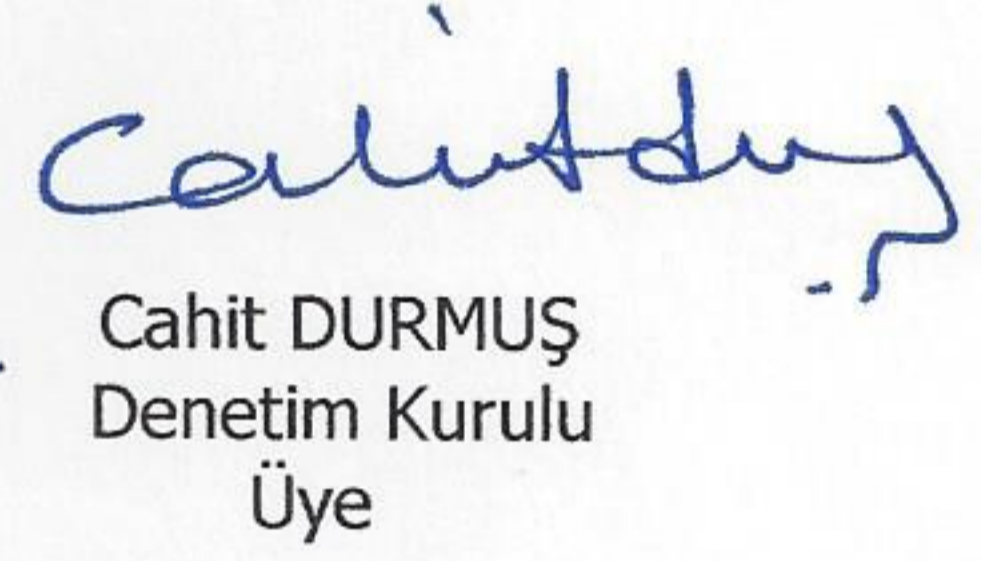 Cahit
Cahit DURMUŞ
Denetim Kurulu
Üye